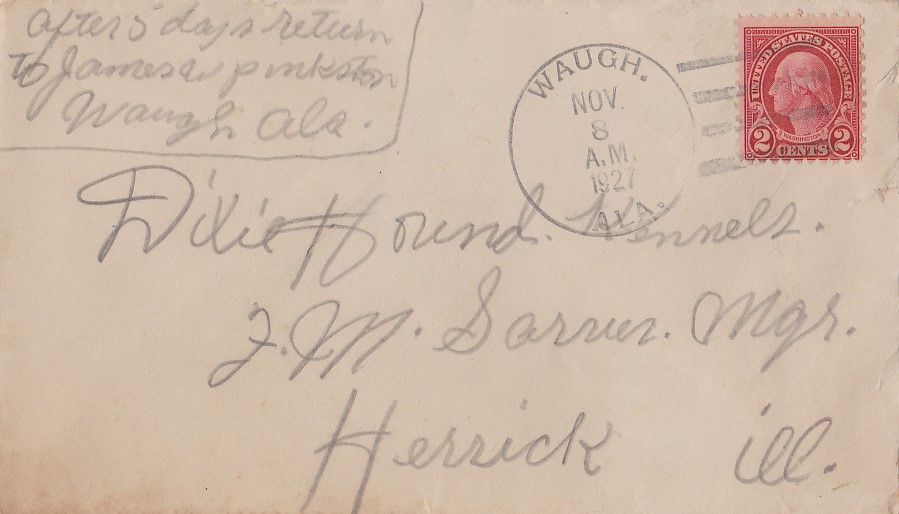 After 5 days return
to James a pinkston
Waugh Ala.
WAUGH.
NOV.
8
A.M.
1927
ALA.
UNITED STATES POSTAGE
WASHINGTON
2 CENTS 2
Dixie Hound. Kennels.
F. M. Sarver. Mgr.
Herrick ill.